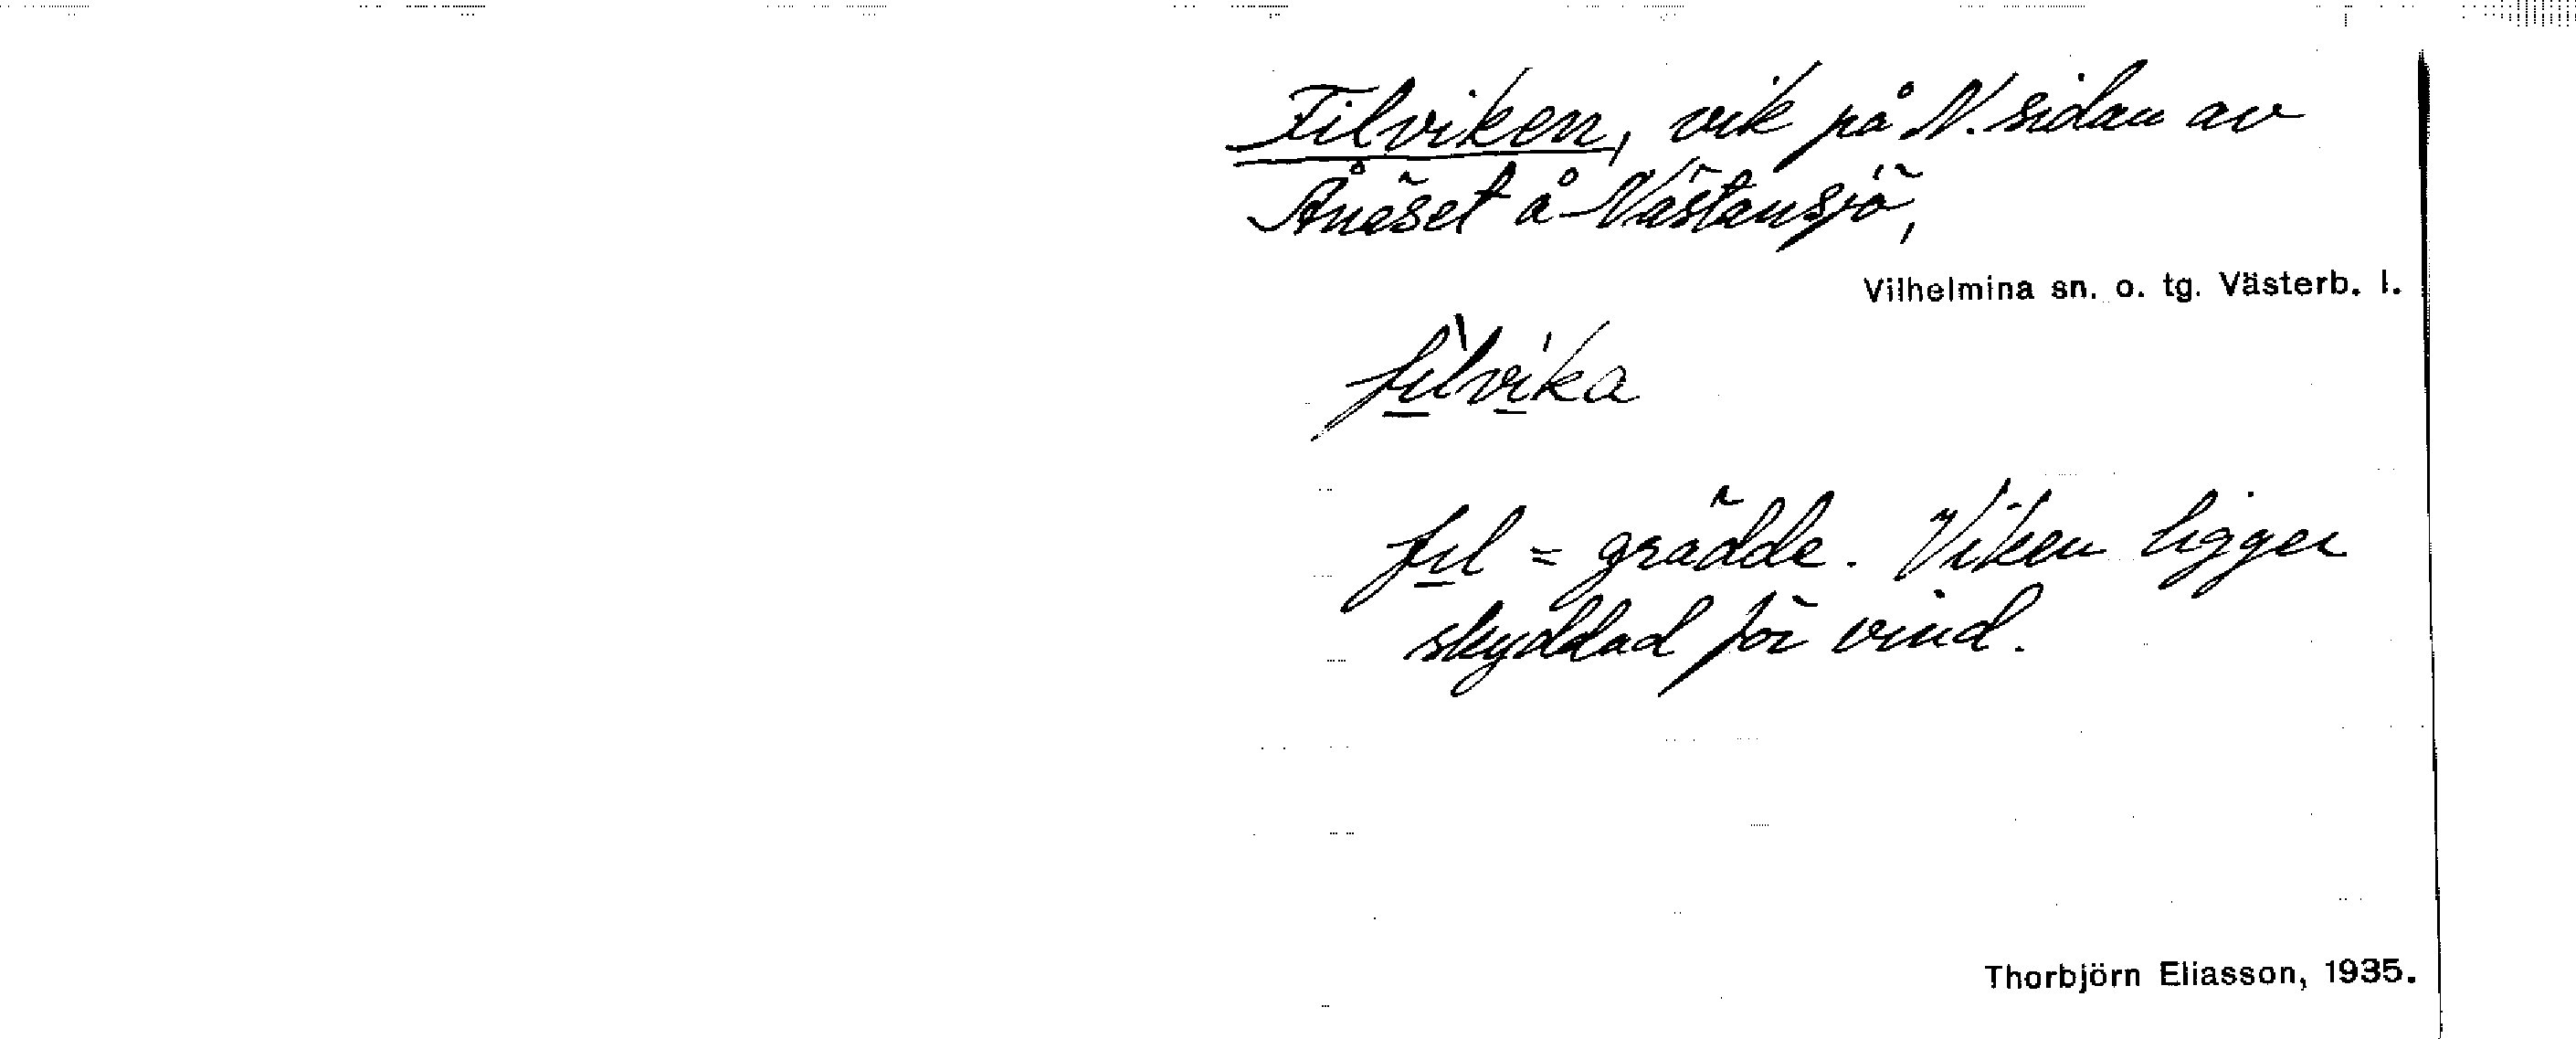 Filviken, vik på N. sidan av
Ånäset å Västansjö,
Vilhelmina sn. o. tg. Västerb. l.
fìlvíka
fil = grädde. Viken ligger
skyddad för vind.
Thorbjörn Eliasson, 1935.